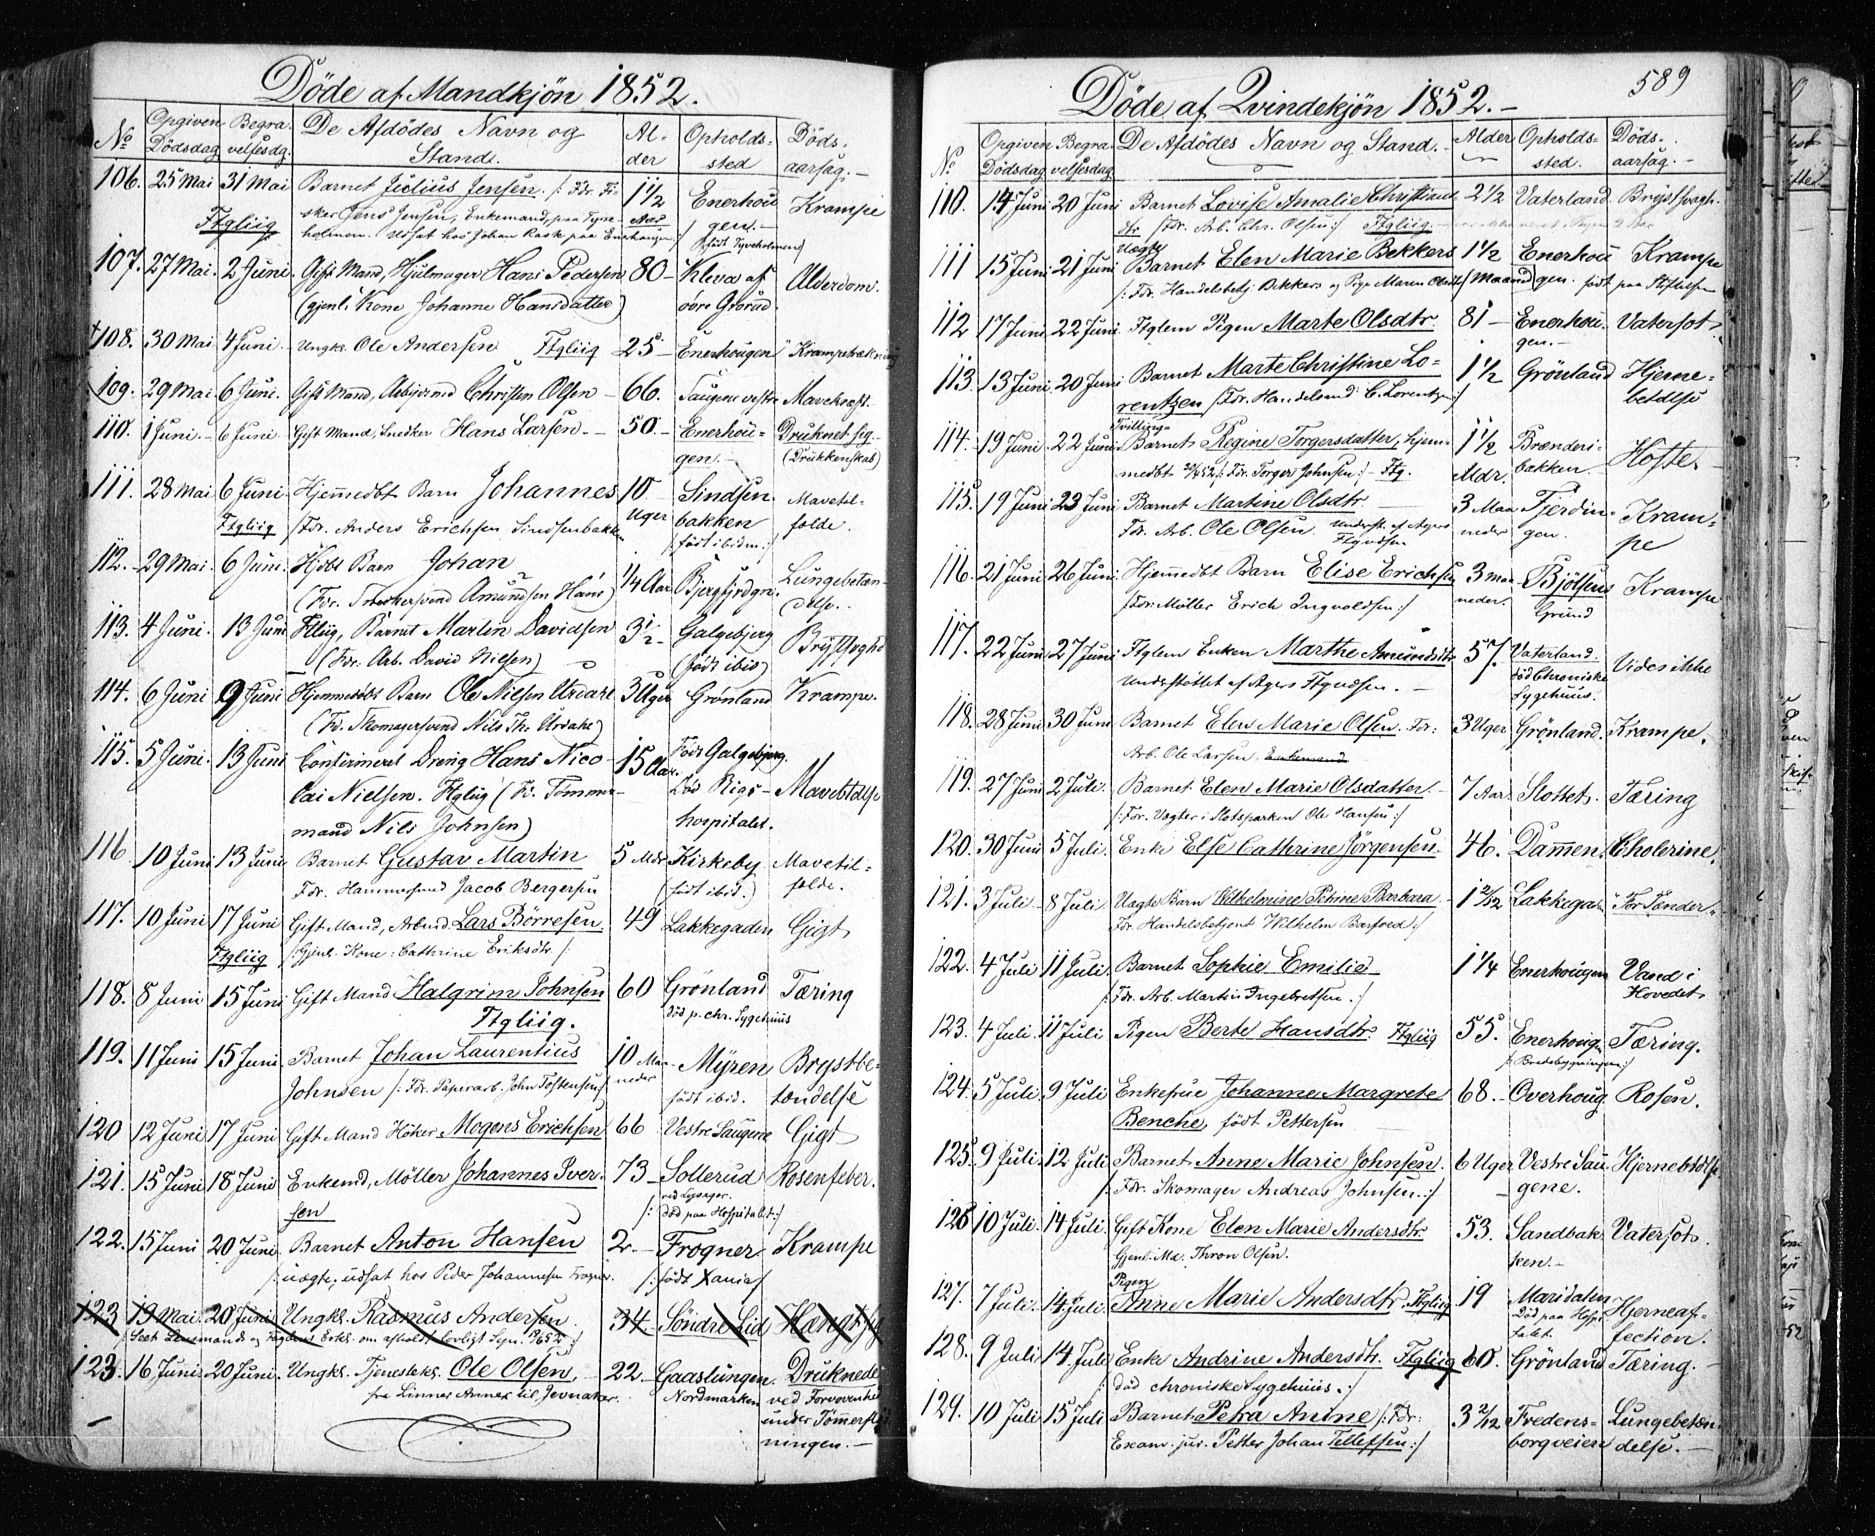 Döde af Mandkjön 1852.
No Opgiven Dödsdag Begravelsesdg. De Afdödes Navn og Stand. Alder Opholdssted Dödsaarsag.
106. 25 Mai 31 Mai Barnet Julius Jensen. /: Fdr. Fi- 1 1/2 Enerhou Krampe
Ftgliig sker Jens Jensen, Enkemand, paa Tyve- Aar gen. -
holmen. Udsat hos Johan Rask paa Enerhougen :/ /: födt Tyveholmen :/
107. 27 Mai. 2 Juni. Gift Mand, Hjulmager Hans Pedersen 80 - Kleva af Alderdom.
(gjenl. Kone Johanne Hansdatter) övre Grorud.
108. 30 Mai 4 Juni. - Ungk. Ole Andersen Ftgliig 25 - Enerhougen Krampetrækning
109. 29 Mai 6 Juni. Gift Mand, Arbejdsmd Christen Olsen - 66. Saugene vestre Mavekræft.
110. 1 Juni. - 6 Juni Gift Mand, Snedker Hans Larsen. - 50. - Enerhou= Druknet sig.
gen. - (Drukkenskab)
111. 28 Mai 6 Juni Hjemmedbt Barn Johannes 10 Sindsen Mavetil-
Ftgliig /: Fdr. Anders Erichsen Sindsenbakken Uger bakken fælde.
födt ibidm :/
112. - 29 Mai. 6 Juni. Hdbt Barn Johan 1/4 Aar Lungebetæn-
Amundsen delse.
113. 4 Juni. 13 Juni Ftliig, Barnet Martin Davidsen 3 1/2 - Galgebjerg Brystsyghd
(Fdr. Arb. David Nielsen) (födt ibid)
114. 6 Juni 9 Juni Hjemmedöbt Barn Ole Nielsen Urdahl 3 Uger Grönland Krampe.
(Fd. Skomagersvend Nils Th. Urdahl)
115. 5 Juni. 13 Juni Confirmeret Dreng Hans Nico- 15 Aar. Födt Galgebjerg.
lai Nielsen. Ftgliig (Fd. Tömmer- Död Rigs- Mavebtdlse
mand Nils Johnsen) hospitalet.
116 10 Juni 13 Juni Barnet Gustav Martin 5 Mdr Kirkeby Mavetil-
Fdr. Hammersmed Jacob Bergersen (födt ibid.) fælde.
117. 10 Juni 17 Juni Gift Mand, Arbmd. Lars Börresen 49 Lakkegaden Gigt
Ftgliig /: Gjenl. Kone: Cathrine Eriksdtr :/
118. 8 Juni 15 Juni Gift Mand Halgrim Johnsen 60 Grönland Tæring
Ftgliig. Död p. chr. Sygehuus
119. 11 Juni 15 Juni Barnet Johan Laurentius 10 Maa- Myren Brystbe-
Johnsen /: Fdr. Papirarb. John Tostensen :/ neder födt ibid. tændelse
120 12 Juni 17 Juni Gift Mand Höker Mogens Erichsen 66 Vestre Saugene Gigt
121. 15 Juni 18 Juni Enkemd, Möller Johannes Iver- 73 - Sollerud Rosenfeber.
sen /: ved Lysager. död paa Hospitalet :/
122. 15 Juni 20 Juni Barnet Anton Hansen 2. - Frogner Krampe
/: uægte, udsat hos Peder Johannesen Frogner. /: födt Xania :/
123 13 Mai. 20 Juni Ungk. Rasmus Andersen. 34 - Söndre Lid Hængt sig
123. 16 Juni. 20 Juni. Ungk. Tjenestek. Ole Olsen, 22. - Gaaslungen. Druknede
fra Linnes Annex til Jevnaker. Nordmarken ved Forvovenhed
under Tömmerfl
ningen. -
Döde af Qvindekjön 1852. - 589
No Opgiven Dödsdag Begravelsesdag De Afdödes Navn og Stand. Alder Opholdssted. Dödsaarsag. -
110. 14 Juni 20 Juni Barnet Lovise Amalie Christians 2 1/2 Vaterland. Brystsygh.
dtr /: Fdr. Arb. Chr. Olsen :/ Ftgliig. -
111 15 Juni 21 Juni Uægte Barnet Elen Marie Bekkers 1 1/2 Enerhou Krampe
/: Fdr. Handelsbetj. Bekkers og Pige Maren Olsdtr :/ Maaned gen. födt paa Stiftelsen
112 17 Juni 22 Juni Ftglem Pigen Marte Olsdtr. 81 - Enerhou Vatersot
gen. -
113. 13 Juni. 20 Juni Barnet Marte Christine Lo= 1 1/2 Grönland Hjerne=
rentzen /: Fdr. Handelsmd. C. Lorentzen :/ betdlse
114. 19 Juni 22 Juni Tvilling= Barnet Regine Torgersdatter, hjem 1 1/2 Brænderi- Hoste -
medbt /: Fdr. Torger Johnsen :/ - Ftg. Mdr. bakken
115. 19 Juni 23 Juni Barnet Martine Olsdtr 3 Maa Fjerdin- Kram-
Fdr. Arb. Ole Olsen. Understt. af Agers Ftgvdsen neder gen. pe
116. 21 Juni 26 Juni Hjemmedbt Barn Elise Erichsen 3 Maa- Bjölsens Krampe
/: Fdr. Møller Erich Ingvoldsen :/ neder. Grund
117. 22 Juni 27 Juni Ftglem Enken Marthe Amundsdtr 57. Vaterland. Vides ikke
Understöttet af Agers Ftgvdsen. - död Chroniske Sygehuus.
118. 28 Juni 30 Juni Barnet Elen Marie Olsen. Fdr: 3 Uger Grönland. Krampe.
Arb. Ole Larsen. Enkemand
119. 27 Juni 2 Juli. Barnet Elen Marie Olsdatter. - 7 Aar. Slottet. Tæring
/: Fdr. Vogter i Slotsparken Ole Hansen :/
120. 30 Juni 5 Juli. Enke Else Cathrine Jörgensen. 46. Dammen. Cholerine.
121. 3 Juli. - 8 Juli. Uægte Barn Wilhelmine Petrine Barbara - 1 2/12 Lakkegad. For Tænder
Fdr. Handelsbetjent Wilhelm Barfoed :/
122. 4 Juli 11 Juli. Barnet Sophie Emilie - 1 1/4 Enerhougen Vand i
/: Fdr. Arb. Martin Ingebretsen. :/ Hovedet.
123. 4 Juli. 11 Juli Pigen Berte Hansdtr. Ftgliig 55. Enerhougen Tæring.
/: Bredebygningen :/
124. 5 Juli 9 Juli Enkefrue Johanne Margrete 68. - Overhoug Rosen.
Benche, födt Pettersen
125. 9 Juli. 12 Juli. Barnet Anne Marie Johnsen. 6 Uger Vestre Sau- Hjernebtdlse
/: Fdr. Skomager Andreas Johnsen. :/ gene.
126 10 Juli. 14 Juli. Gift Kone Elen Marie Andersdtr. 53. Sandbak- Vatersot.
Gjenl. Md. Thron Olsen. ken. -
127. 7 Juli. 14 Juli. Pigen Anne Marie Andersdtr. Ftgliig 19 Maridalen Hjerneaf-
Död paa Hospitalet. fection.
128. 9 Juli 14 Juli Enke Andrine Andersdtr. Ftgliig 60. Grönland Tæring. -
/: död chroniske Sygehuus. :/
129. 10 Juli 15 Juli Barnet Petra Anine /: Fdr: 3 2/12 Fredens= Lungebetæn-
Exam. jur. Petter Johan Tellefsen :/ borgveien delse. -